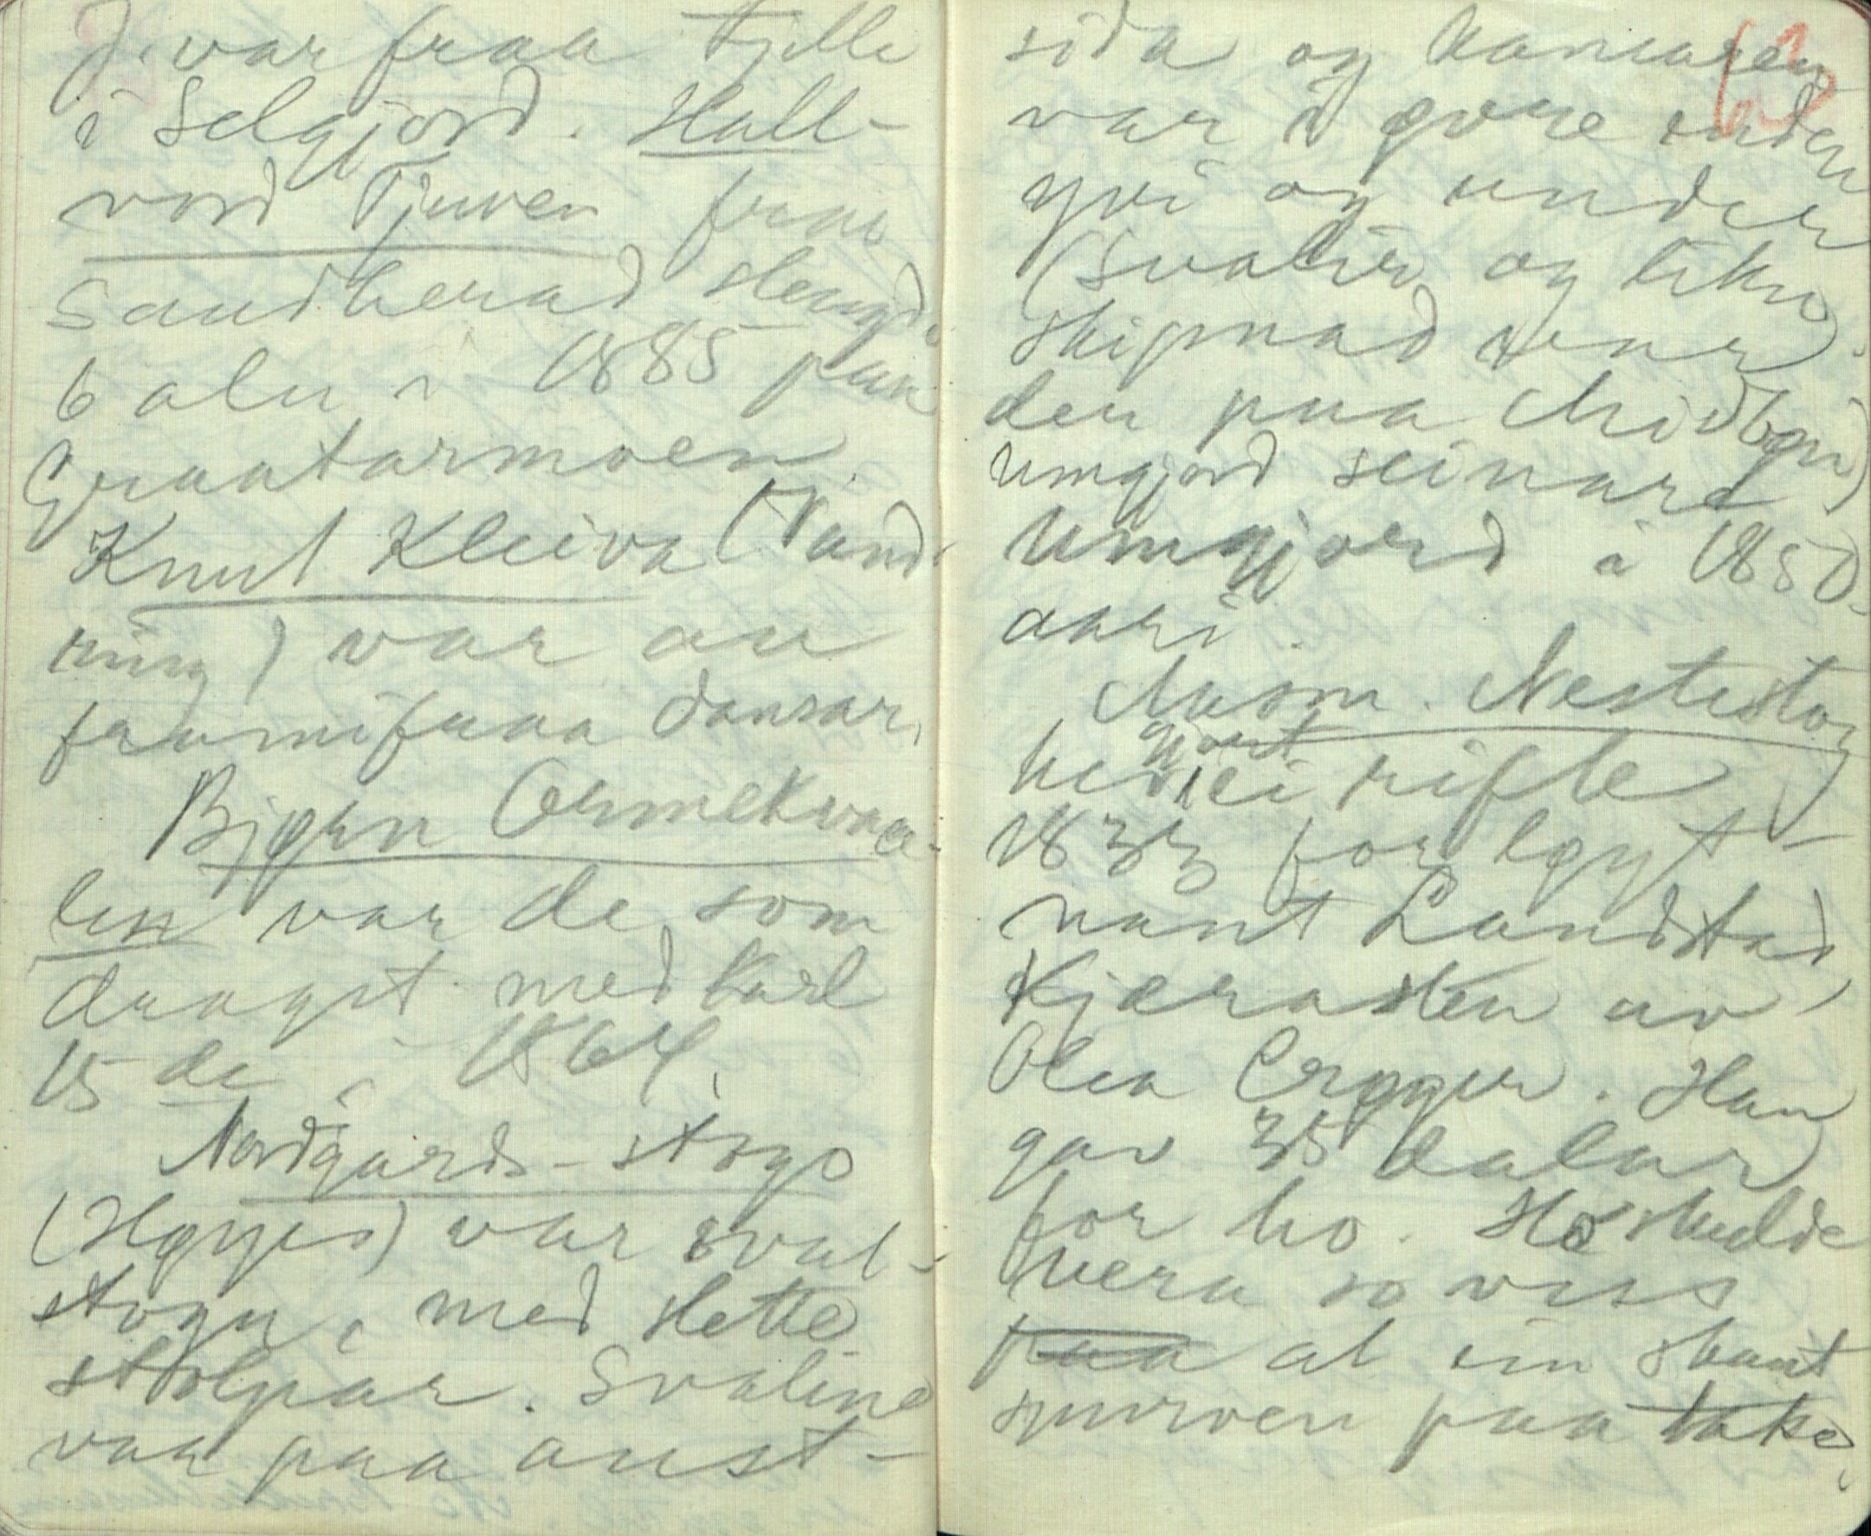 J. var fraa Fjelle
i Selgjord. Hall-
vord Tjuven fraa
Sandherad slengde
6 aln i 1885 paa
Graatarmoen.
Knut Kleiva (Tand-
ring) var au
framifraa dansar.
Bjørn Ormekvaa-
len var de som
drogst med Karl
15 de i 1864.
Nordgards-stogo
(Høgjes) var sval-
stogu, med slette
stolpar. Svaline
var paa aust-
63
sida og
var i øvre enden
yvi og under
(Svalir og like
skipnad var
den paa Midbøn)
umgjord seinare
Umgjord i 1850-
aari.
Aasm. Nestestog
hev gjort ei rifle
1833 for løyt-
nant Landstad,
Kjærasten av
Olea Crøger. Han
gav 35 dalar
for ho. Ho skulde
vera so viss
paa at ein skaut
spurven paa take,